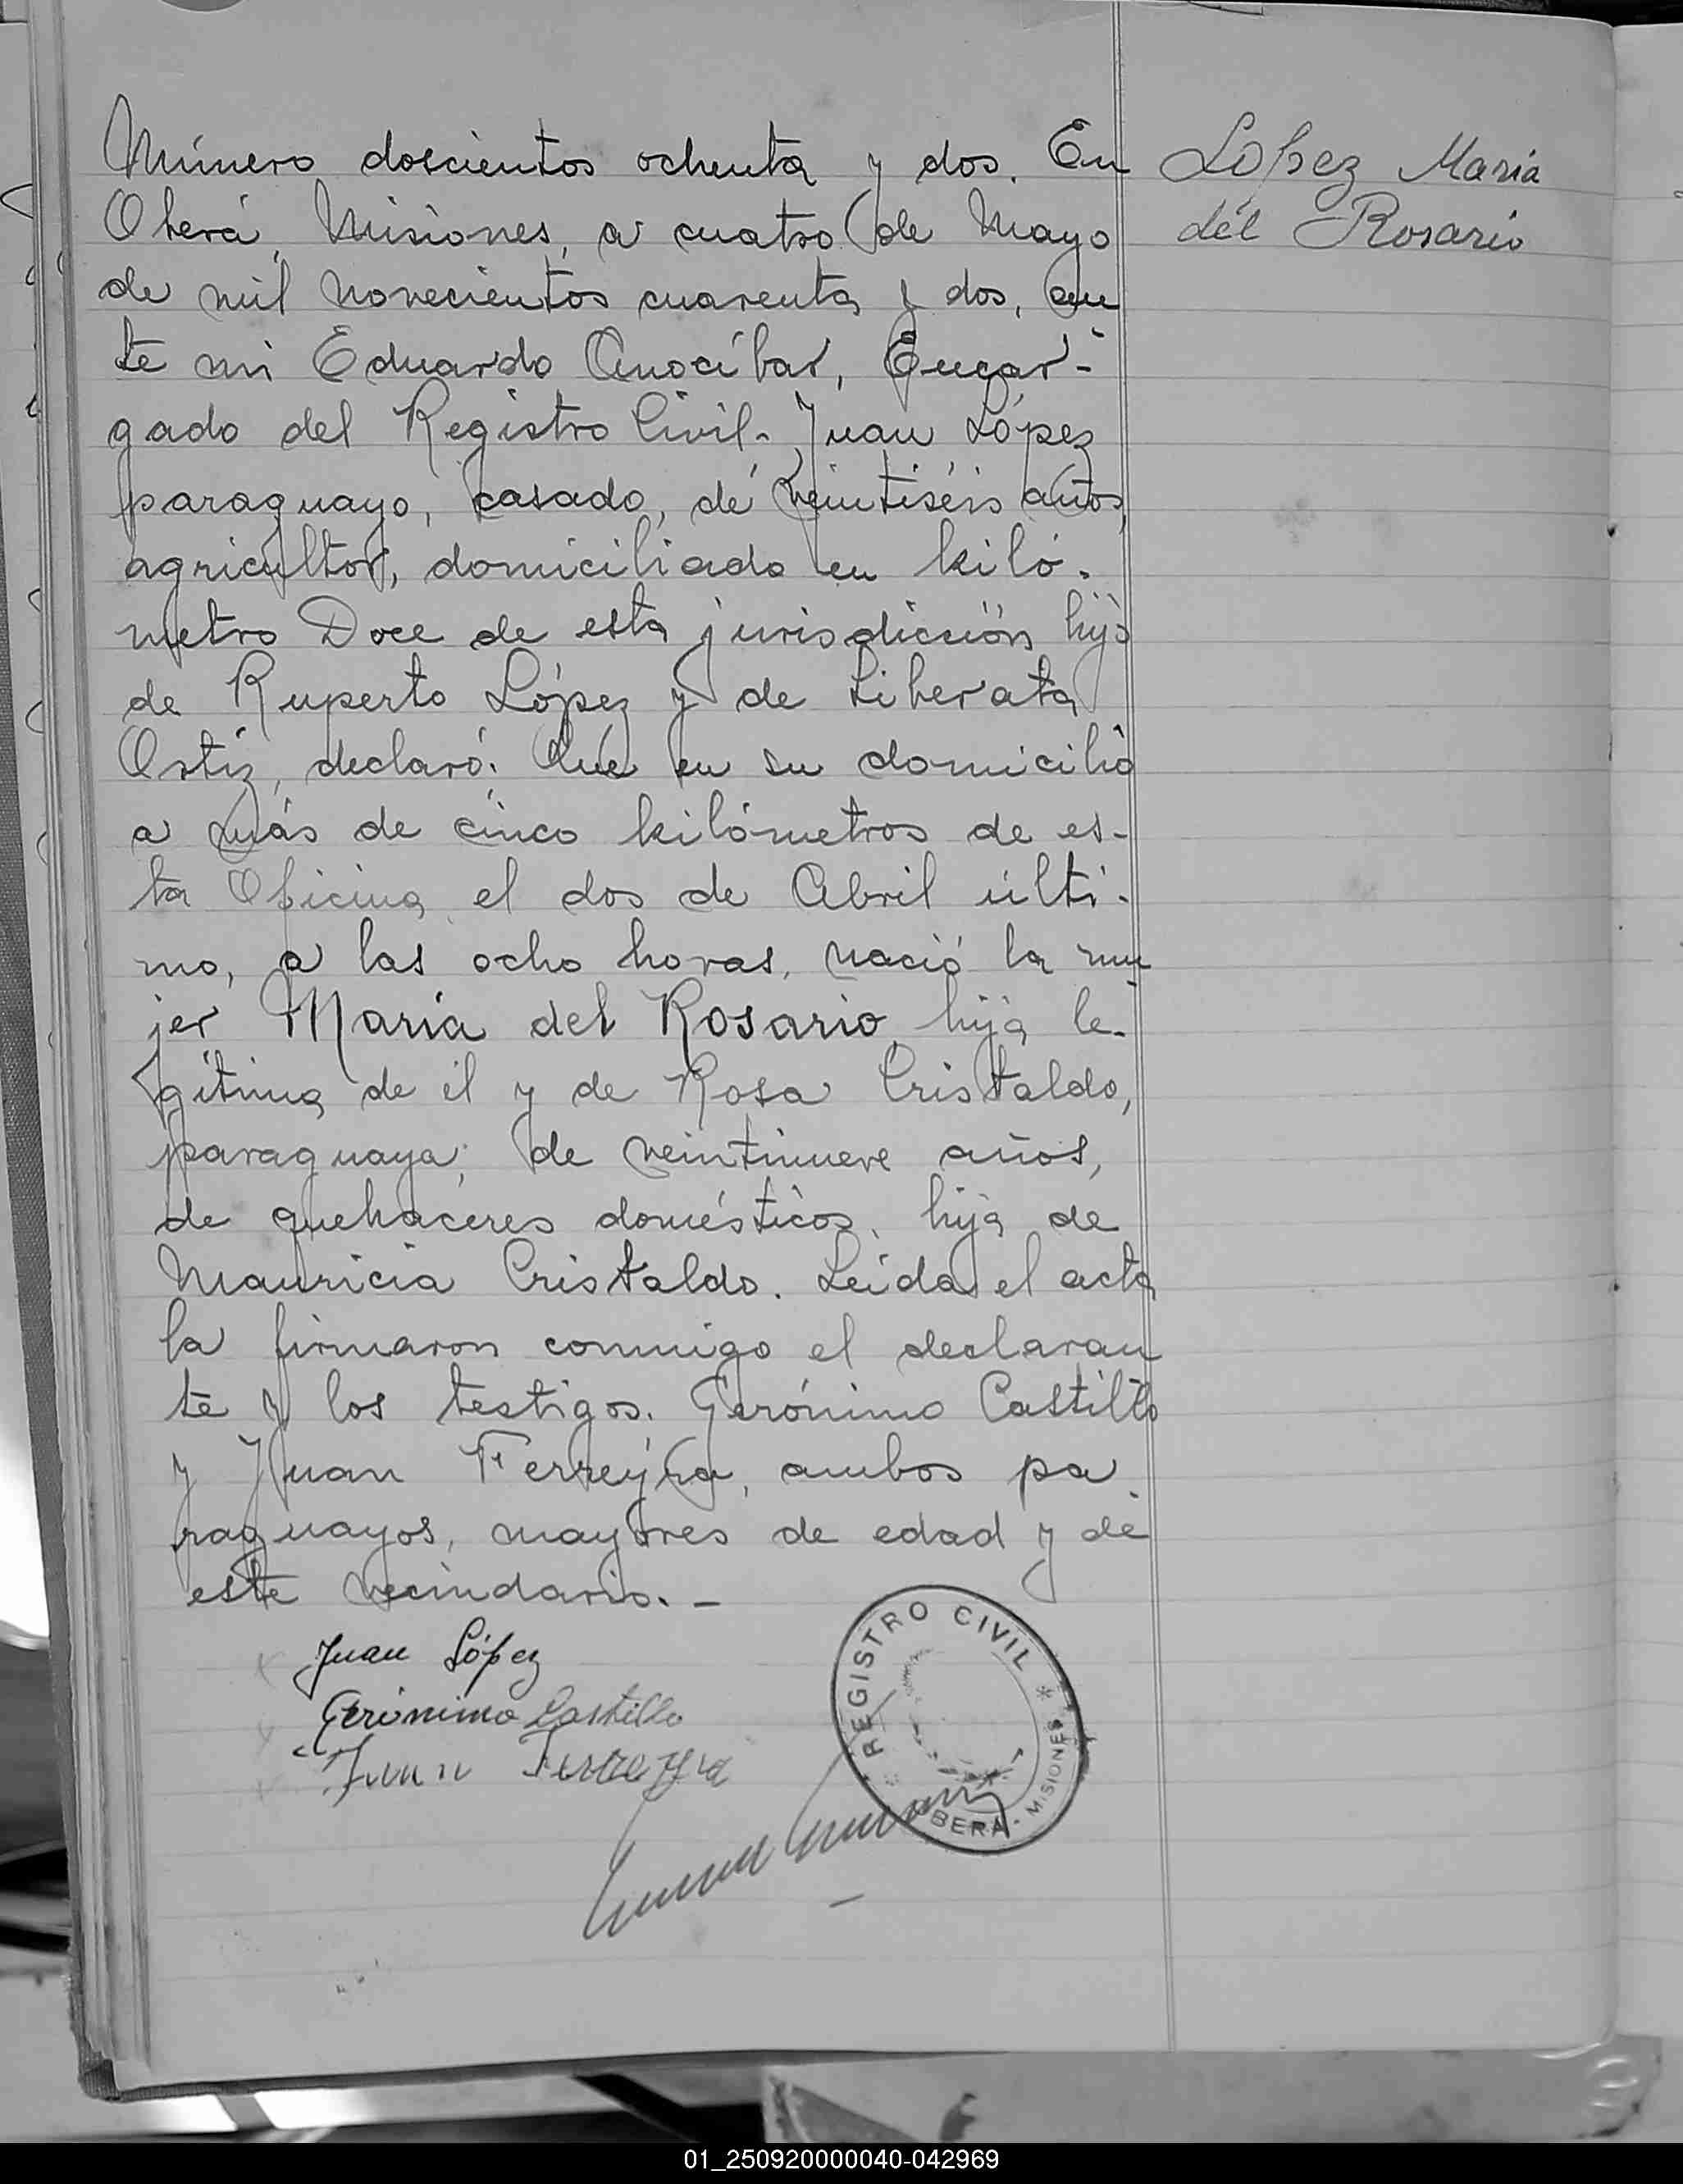 Número doscientos ochenta y dos. En
Oberá, Misiones, a cuatro de Mayo
de mil novecientos cuarenta y dos, an
te mi Eduardo Anocíbar, Encar-
gado del Registro Civil. Juan López
paraguayo, casado, de veintiséis años,
agricultor, domiciliado en kiló-
metro Doce de esta jurisdicción hijo
de Ruperto López y de Liberata
Ortiz, declaró: Que en su domicilio
a más de cinco kilómetros de es-
ta Oficina el dos de Abril últi-
mo, a las ocho horas, nació la mu
jer María del Rosario, hija le-
gítima de él y de Rosa Cristaldo,
paraguaya, de veintinueve años,
de quehaceres domésticos, hija de
Mauricia Cristaldo. Leída el acta
la firmaron conmigo el declaran
te y los testigos. Gerónimo Castillo
y Juan Ferreyra, ambos pa
raguayos, mayores de edad y de
este vecindario. -
López Maria
del Rosario
Juan López
Gerónimo Castillo
Juan Ferreyra
REGISTRO CIVIL * OBERÁ - MISIONES *
01_250920000040-042969